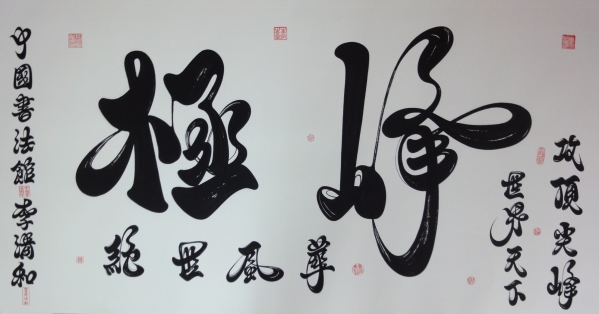 極峰
絕世風華
攻頂尖峰
世界天下
中國書法館李清和